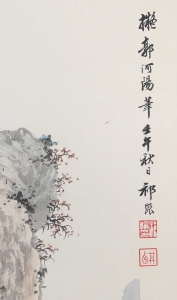 擬郭河陽筆壬午秋日祁崑